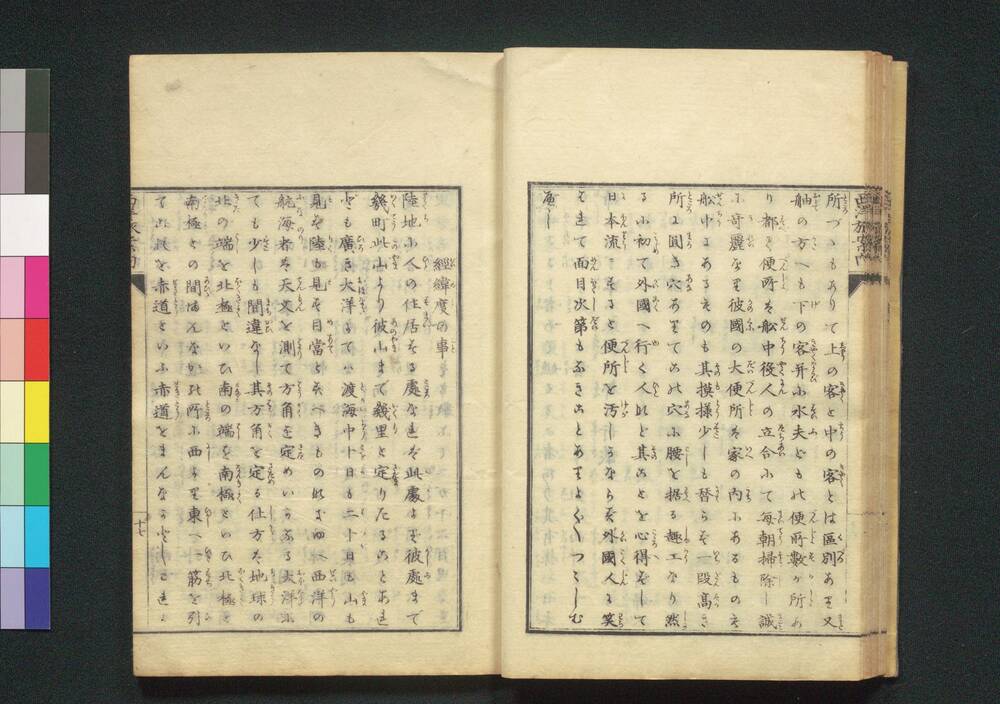 所つゝもありて上の客と中の客とは區別あり又
舳の方へも下の客并に水夫どもの便所數ヶ所あ
り都て便所は船中役人の立合にて毎朝掃除し誠
に奇麗なり彼國の大便所は家の内にあるものも
船中にあるそのも其摸様少しも替らず一段高き
所に圓き穴ありてこの穴に腰を据る趣工なり然
るに初て外國へ行く人など其ことを心得ずして
日本流にすると便所を汚しうならず外國人に笑
はれて面目次第もなきことありよく〱つゝしむ
べし
經緯度の事
陸地に人の住居する處なれば此處より彼處まで
幾町此山より彼山まで幾里と定りたることあれ
ども廣き大洋にては渡海中十日も二十日も山も
見ず陸も見ず目當とすべきものなきゆへ西洋の
航海者は天文を測て方角を定めいかなる大洋に
ても少しも間違なし其方角を定る仕方は地球の
北の端を北極といひ南の端を南極といひ北極と
南極との間まんなかの所に西より東へ一筋を引
てこれを赤道といふ赤道をまんなかとしてこれよ
十七